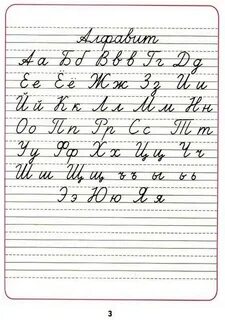 Алфавит
Аа Бб Вв Гг Дд
Ее Ёё Жж Зз Ии
Йй Кк Лл Мм Нн
Оо Пп Рр Сс Тт
Уу Фф Хх Цц Чч
Шш Щщ ъъ ы ы ьь
Ээ Юю Яя
3